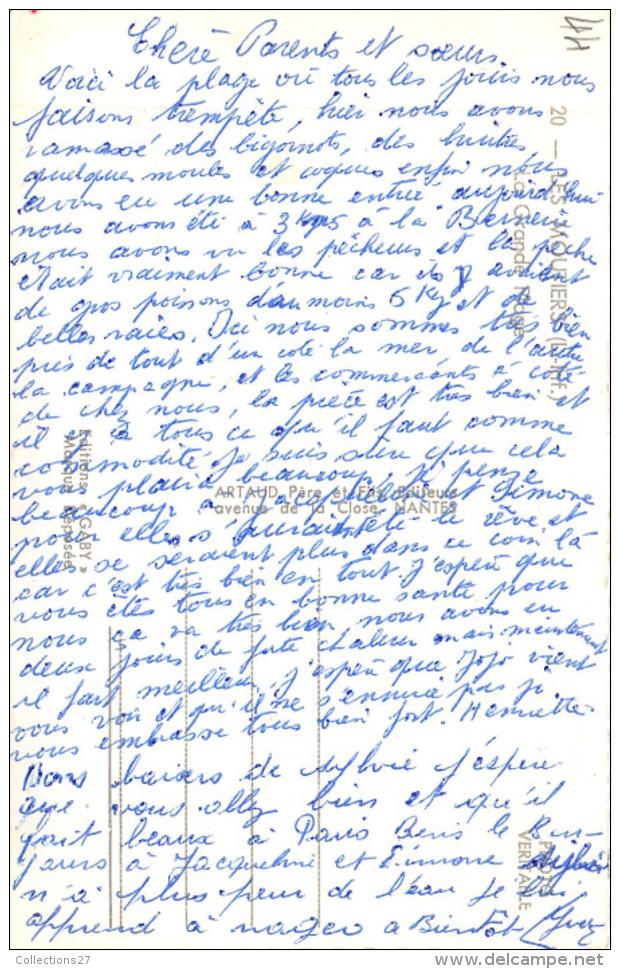 44
Cheré Parents et sœurs.
Voici la plage où tous les jours nous
faisons trempète, hier nous avons
ramassé des bigornots, des huitres,
quelques moules et coques enfin nous
avons eu une bonne entrée aujourd'hui
nous avons été à 3 kms à la
nous avons vu les pêcheurs et la pêche
était vraiment bonne car ils y avaient
de gros poissons d'au moins 5 Kg et de
belles raies. Ici nous sommes très bien
près de tout d'un coté la mer, de l'autre
la campagne, et les commercants à coté
de chez nous, la pièce est très bien et
il y a tous ce qu'il faut comme
commodité je suis sur que cela
vous plairai beaucoup, j'y pense
beaucoup à et Simone
pour elles s'aurait été le rêve et
elles se seraient plus dans ce coin là
car c'est très bien en tout j'espère que
vous êtes tous en bonne santé pour
nous ça va très bien, nous avons eu
deux jours de forte chaleur mais maintenant
il fait meilleur, j'espère que Jojo vient
vous voir et qu'il ne s'ennuie pas je
vous embrasse tous bien fort. Henriette
Bons baisers de Sylvie j'espère
que vous allez bien et qu'il
fait beaux à Paris le Bon-
jours à Jacqueline et Simone Sylvie
n'a plus peur de l'eau je lui
apprend à nager a Bientot
20 — LES MOUTIERS (L.-Inf.)
La Grande Plage
ARTAUD Père et Fils, Editeurs
avenue de la Close, NANTES
Editions « GABY »
Marque déposée
PHOTO
VERITABLE
Collections27